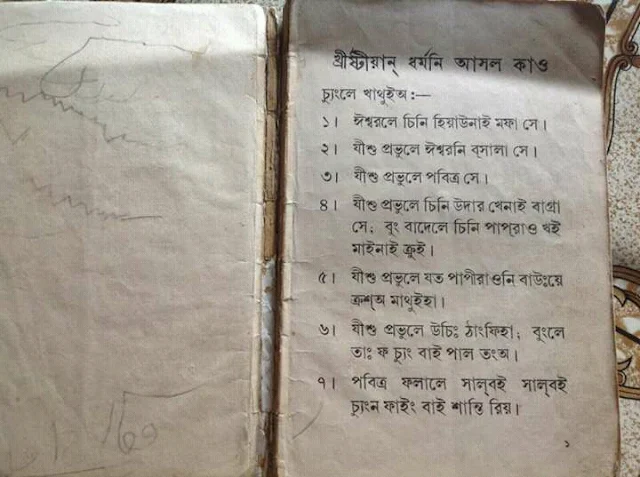 খ্রীষ্টীয়ান্ ধর্মনি আসল কাও
চ্যুংলে খাথুইঅ :—
১। ঈশ্বরলে চিনি হিয়াউনাই মফা সে।
২। যীশু প্রভুলে ঈশ্বরনি ব্সালা সে।
৩। যীশু প্রভুলে পবিত্র সে।
৪। যীশু প্রভুলে চিনি উদার খেনাই বাগ্রা
সে; বৃং বাদেলে চিনি পাপ্‌রাও খই
মাইনাই ক্লুই।
৫। যীশু প্রভুলে যত পাপীরাওনি বাউঃয়ে
ক্রুশ্অ মাথুইহা।
৬। যীশু প্রভুলে উচিঃ ঠাংফিহা; বৃংলে
তাঃ ফ চ্যুং বাই পাল তংঅ।
৭। পবিত্র ফলালে সাল্‌বই সাল্‌বই
চ্যুংন ফাইং বাই শান্তি রিয়।
১
160